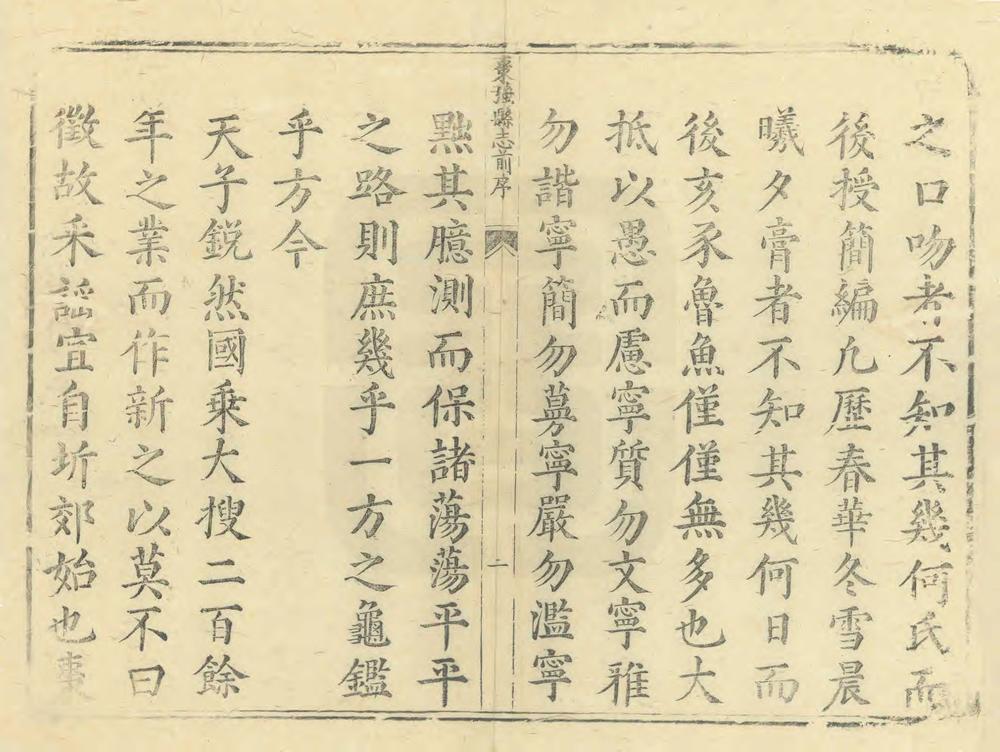 之口吻者不知其幾何氏而
後授簡編凡歷春華冬雪晨
曦夕膏者不知其幾何日而
後亥豕魯魚僅僅無多也大
抵以愚而慮寧質勿文寧雅
勿諧寧簡勿蒭寧嚴勿濫寧
棗強縣志前序
二
黜其臆測而保諸蕩蕩平平
之路則庶幾乎一方之龜鑑
乎方今
天子銳然國乘大搜二百餘
年之業而作新之以莫不曰
徵故采謡宜自圻郊始也棗